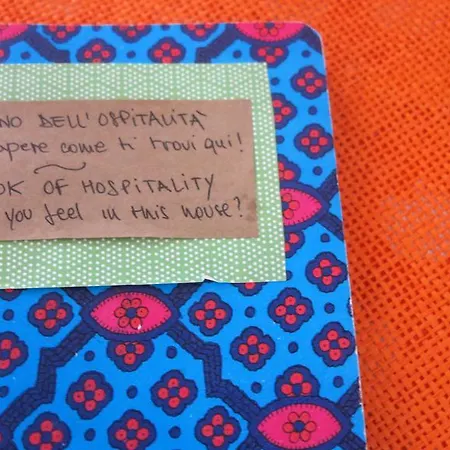 NO DELL'OSPITALITÀ
apere come ti trovi qui!
OK OF HOSPITALITY
you feel in this house?